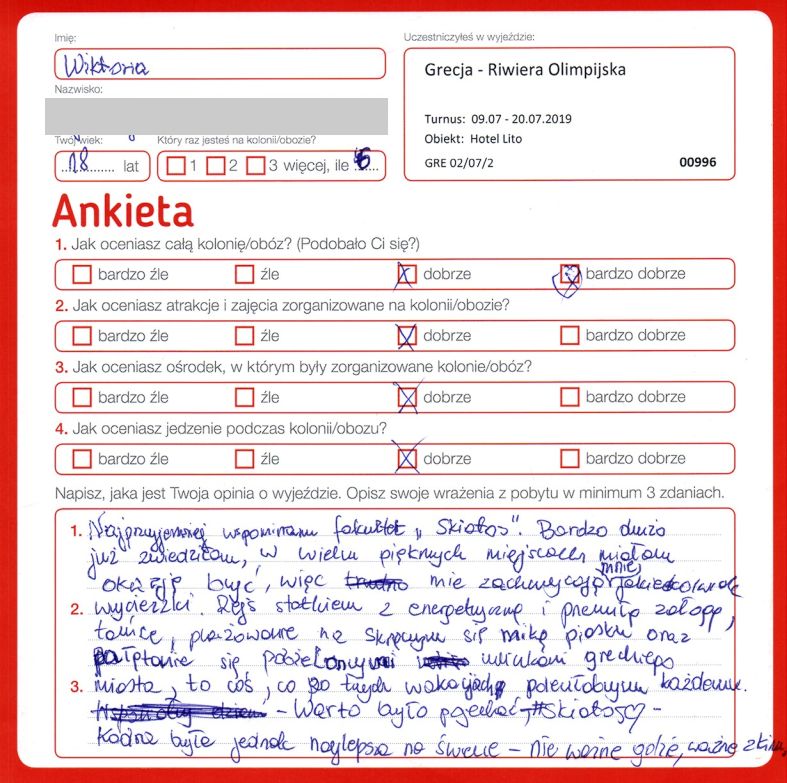 Imię:
Wiktoria
Nazwisko:
Twój wiek:
18 lat
Który raz jesteś na kolonii/obozie?
1 2 3 więcej, ile 6
Uczestniczyłeś w wyjeździe:
Grecja - Riwiera Olimpijska
Turnus: 09.07 - 20.07.2019
Obiekt: Hotel Lito
GRE 02/07/2 00996
Ankieta
1. Jak oceniasz całą kolonię/obóz? (Podobało Ci się?)
bardzo źle źle dobrze bardzo dobrze
2. Jak oceniasz atrakcje i zajęcia zorganizowane na kolonii/obozie?
bardzo źle źle dobrze bardzo dobrze
3. Jak oceniasz ośrodek, w którym były zorganizowane kolonie/obóz?
bardzo źle źle dobrze bardzo dobrze
4. Jak oceniasz jedzenie podczas kolonii/obozu?
bardzo źle źle dobrze bardzo dobrze
Napisz, jaka jest Twoja opinia o wyjeździe. Opisz swoje wrażenia z pobytu w minimum 3 zdaniach.
1. Najprzyjemniej wspominam fakultet „Skiatos". Bardzo dużo
już zwiedziłam, w wielu pięknych miejscach miałam
okazję być, więc nie zachwycają mnie
2. wycieczki. Rejs statkiem z energetyczną i przemiłą załogą,
tańce, plażowanie na skrzącym się miką piasku oraz
pałętanie się pobielonymi uliczkami greckiego
3. miasta, to coś, co po tych wakacjach poleciłabym każdemu.
- Warto było pojechać, #Skiatos♡ -
Kadra była jednak najlepsza na świecie - nie ważne gdzie, ważne z kim,